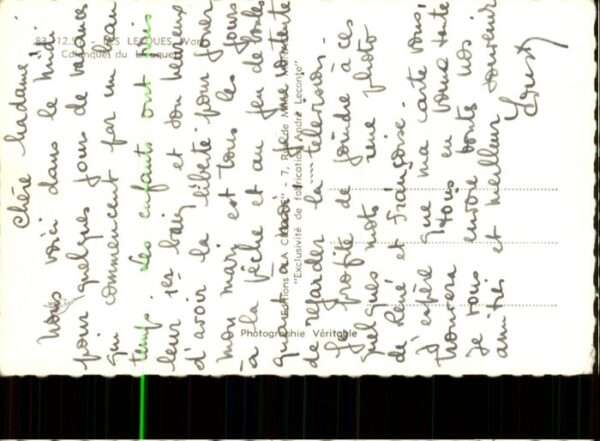 83.12.5 - LES LECQUES (Var)
Calanques du
Editions "LA C - 7, Rue de M
"Exclusivité de fabrication André Leconte"
Photographie Véritable
chère Madame
nous voici dans le midi
pour quelques jours de vacances
qui commencent par un beau
temps. Les enfants ont pris
leur 1er bain et son heureux
d'avoir la liberté pour jouer
mon mari est tous les jours
à la pêche et au jeu de boules
quant à moi je me contente
de regarder la télévision -
Je profite de joindre à ces
quelques mots une photo
de René et Françoise -
J'espère que ma carte vous
trouvera tous en bonne santé
Je vous envoie toutes nos
amitiés et meilleur souvenir